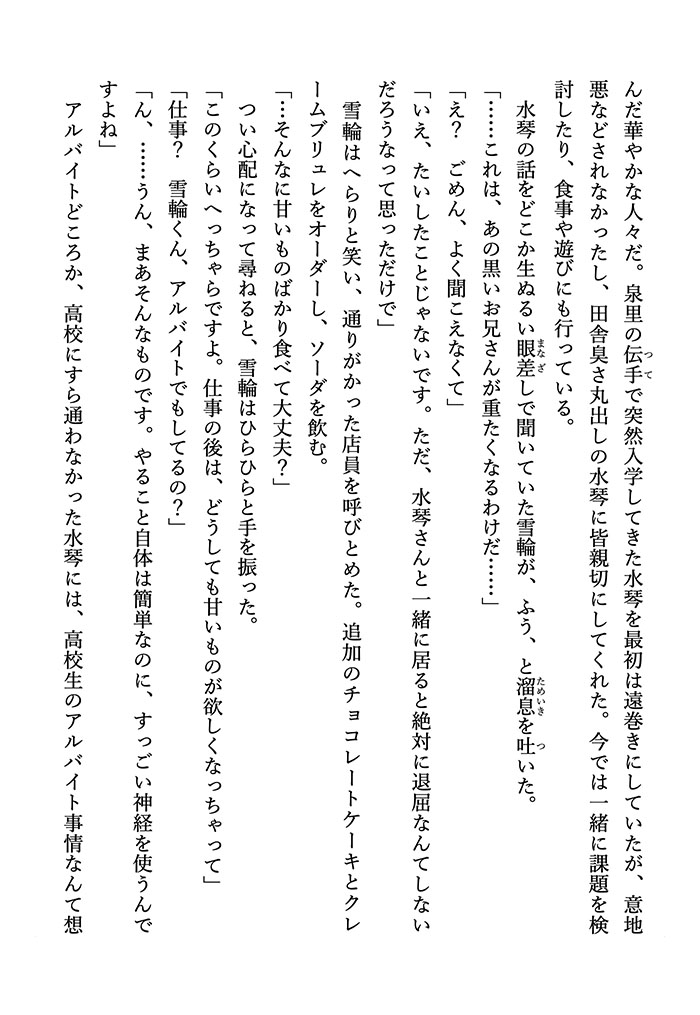 んだ華やかな人々だ。泉里の伝手で突然入学してきた水琴を最初は遠巻きにしていたが、意地
悪などされなかったし、田舎臭さ丸出しの水琴に皆親切にしてくれた。今では一緒に課題を検
討したり、食事や遊びにも行っている。
　水琴の話をどこか生ぬるい眼差しで聞いていた雪輪が、ふう、と溜息を吐いた。
「……これは、あの黒いお兄さんが重たくなるわけだ……」
「え？　ごめん、よく聞こえなくて」
「いえ、たいしたことじゃないです。ただ、水琴さんと一緒に居ると絶対に退屈なんてしない
だろうなって思っただけで」
　雪輪はへらりと笑い、通りがかった店員を呼びとめた。追加のチョコレートケーキとクレ
ームブリュレをオーダーし、ソーダを飲む。
「…そんなに甘いものばかり食べて大丈夫？」
　つい心配になって尋ねると、雪輪はひらひらと手を振った。
「このくらいへっちゃらですよ。仕事の後は、どうしても甘いものが欲しくなっちゃって」
「仕事？　雪輪くん、アルバイトでもしてるの？」
「ん、……うん、まあそんなものです。やること自体は簡単なのに、すっごい神経を使うんで
すよね」
　アルバイトどころか、高校にすら通わなかった水琴には、高校生のアルバイト事情なんて想
つて
まなざ
ためいき
つ